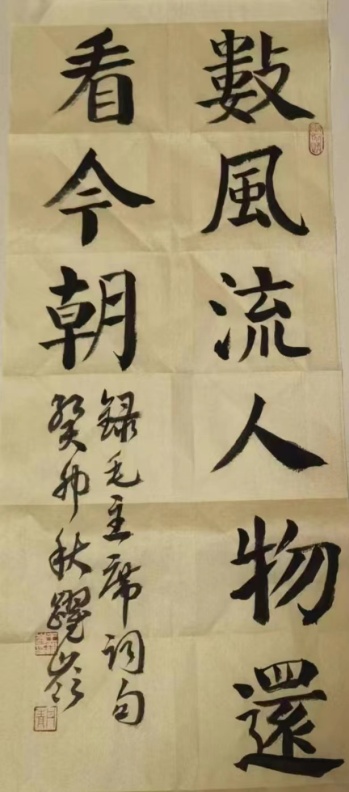 數風流人物還
看今朝
録毛主席詞句
癸卯秋躍嶺